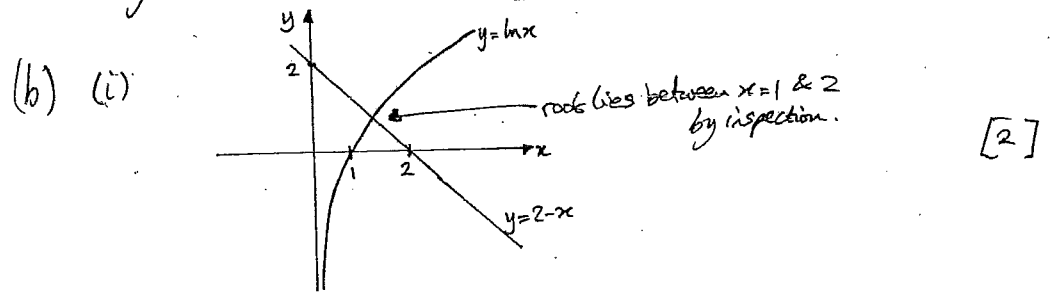 y
y=lnx
2
(b) (i)
root lies between x=1 & 2
by inspection.
[2]
x
1
2
y=2-x